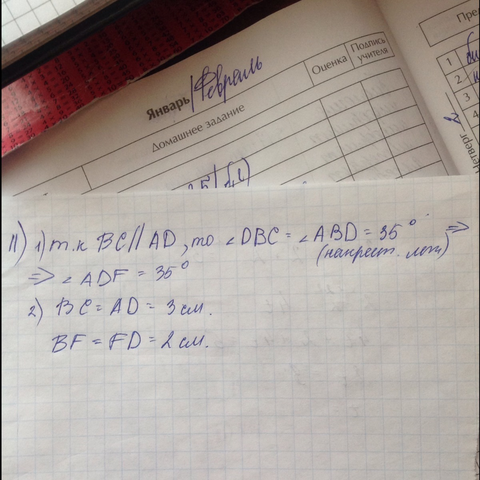 Январь Февраль
Домашнее задание
Оценка
Подпись учителя
Пре
1
2
3
4
Четверг
11) 1) т.к BC//AD, то ∠DBC = ∠ABD = 35° ⇒
(накрест. леж)
⇒ ∠ADF = 35°
2) BC = AD = 3 см.
BF = FD = 2 см.